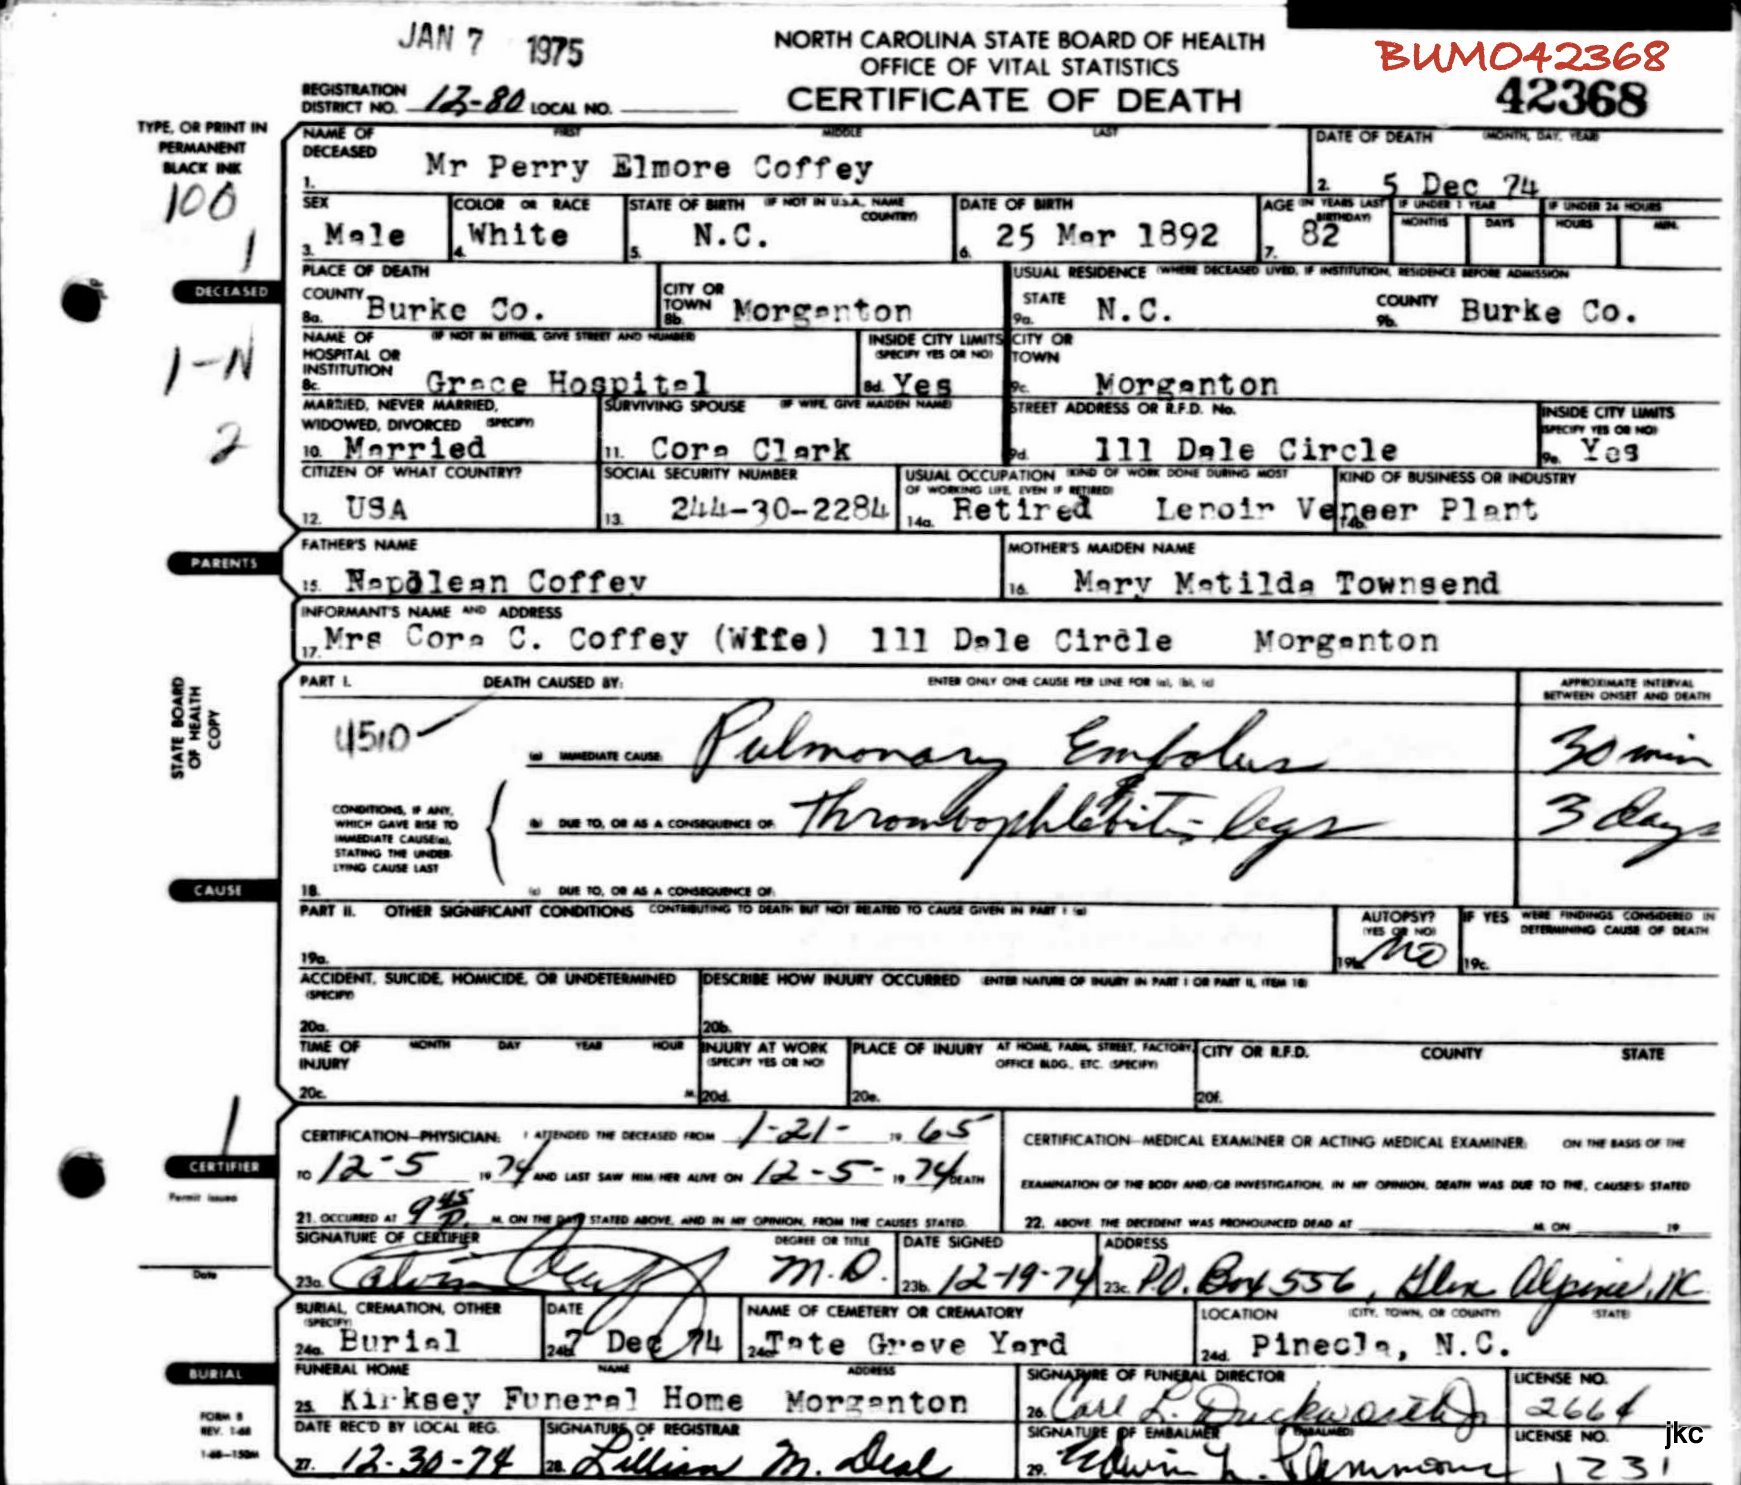 JAN 7 1975
NORTH CAROLINA STATE BOARD OF HEALTH
OFFICE OF VITAL STATISTICS
CERTIFICATE OF DEATH
BUMO42368
42368
REGISTRATION DISTRICT NO. 12-80 LOCAL NO.
TYPE, OR PRINT IN
PERMANENT
BLACK INK
100
1
DECEASED
1-N
2
NAME OF DECEASED FIRST MIDDLE LAST
1. Mr Perry Elmore Coffey
DATE OF DEATH (MONTH, DAY, YEAR)
2. 5 Dec 74
SEX
3. Male
COLOR OR RACE
4. White
STATE OF BIRTH (IF NOT IN U.S.A., NAME COUNTRY)
5. N.C.
DATE OF BIRTH
6. 25 Mar 1892
AGE (IN YEARS LAST BIRTHDAY)
7. 82
IF UNDER 1 YEAR MONTHS DAYS
IF UNDER 24 HOURS HOURS MIN.
PLACE OF DEATH
COUNTY 8a. Burke Co.
CITY OR TOWN 8b. Morganton
USUAL RESIDENCE (WHERE DECEASED LIVED, IF INSTITUTION, RESIDENCE BEFORE ADMISSION
STATE 9a. N.C.
COUNTY 9b. Burke Co.
NAME OF HOSPITAL OR INSTITUTION (IF NOT IN EITHER, GIVE STREET AND NUMBER)
8c. Grace Hospital
INSIDE CITY LIMITS (SPECIFY YES OR NO)
8d. Yes
CITY OR TOWN
9c. Morganton
MARRIED, NEVER MARRIED, WIDOWED, DIVORCED (SPECIFY)
10. Married
SURVIVING SPOUSE (IF WIFE, GIVE MAIDEN NAME)
11. Cora Clark
STREET ADDRESS OR R.F.D. No.
9d. 111 Dale Circle
INSIDE CITY LIMITS (SPECIFY YES OR NO)
9e. Yes
CITIZEN OF WHAT COUNTRY?
12. USA
SOCIAL SECURITY NUMBER
13. 244-30-2284
USUAL OCCUPATION (KIND OF WORK DONE DURING MOST OF WORKING LIFE, EVEN IF RETIRED)
14a. Retired
KIND OF BUSINESS OR INDUSTRY
14b. Lenoir Veneer Plant
PARENTS
FATHER'S NAME
15. Napolean Coffey
MOTHER'S MAIDEN NAME
16. Mary Matilda Townsend
INFORMANT'S NAME AND ADDRESS
17. Mrs Cora C. Coffey (Wife) 111 Dale Circle Morganton
STATE BOARD
OF HEALTH
COPY
PART I. DEATH CAUSED BY: ENTER ONLY ONE CAUSE PER LINE FOR (a), (b), (c)
APPROXIMATE INTERVAL BETWEEN ONSET AND DEATH
4510
(a) IMMEDIATE CAUSE: Pulmonary Embolus 30 min
CONDITIONS, IF ANY,
WHICH GAVE RISE TO
IMMEDIATE CAUSE(a),
STATING THE UNDER-
LYING CAUSE LAST
(b) DUE TO, OR AS A CONSEQUENCE OF: Thrombophlebitis legs 3 days
CAUSE
18. (c) DUE TO, OR AS A CONSEQUENCE OF:
PART II. OTHER SIGNIFICANT CONDITIONS CONTRIBUTING TO DEATH BUT NOT RELATED TO CAUSE GIVEN IN PART I (a)
19a.
AUTOPSY? (YES OR NO)
19b. NO
IF YES WERE FINDINGS CONSIDERED IN DETERMINING CAUSE OF DEATH
19c.
ACCIDENT, SUICIDE, HOMICIDE, OR UNDETERMINED (SPECIFY)
20a.
DESCRIBE HOW INJURY OCCURRED (ENTER NATURE OF INJURY IN PART I OR PART II, ITEM 18)
20b.
TIME OF INJURY MONTH DAY YEAR HOUR
20c. M.
INJURY AT WORK (SPECIFY YES OR NO)
20d.
PLACE OF INJURY AT HOME, FARM, STREET, FACTORY, OFFICE BLDG., ETC. (SPECIFY)
20e.
CITY OR R.F.D. COUNTY STATE
20f.
1
CERTIFIER
Permit issued
Date
CERTIFICATION—PHYSICIAN: I ATTENDED THE DECEASED FROM 1-21- 19 65
TO 12-5 19 74 AND LAST SAW HIM/HER ALIVE ON 12-5- 19 74 DEATH
21. OCCURRED AT 9 45 P. M. ON THE DAY STATED ABOVE, AND IN MY OPINION, FROM THE CAUSES STATED.
CERTIFICATION—MEDICAL EXAMINER OR ACTING MEDICAL EXAMINER: ON THE BASIS OF THE
EXAMINATION OF THE BODY AND/OR INVESTIGATION, IN MY OPINION, DEATH WAS DUE TO THE, CAUSE(S) STATED
22. ABOVE. THE DECEDENT WAS PRONOUNCED DEAD AT M. ON 19
SIGNATURE OF CERTIFIER DEGREE OR TITLE
23a. M.D.
DATE SIGNED
23b. 12-19-74
ADDRESS
23c. P.O. Box 556, Glen Alpine, NC
BURIAL, CREMATION, OTHER (SPECIFY)
24a. Burial
DATE
24b. 7 Dec 74
NAME OF CEMETERY OR CREMATORY
24c. Tate Grove Yard
LOCATION (CITY, TOWN, OR COUNTY) (STATE)
24d. Pineola, N.C.
BURIAL
FUNERAL HOME NAME ADDRESS
25. Kirksey Funeral Home Morganton
SIGNATURE OF FUNERAL DIRECTOR
26. Carl L. Duckworth Jr
LICENSE NO.
2664
FORM 8
REV. 1-68
1-68—150M
DATE REC'D BY LOCAL REG.
27. 12-30-74
SIGNATURE OF REGISTRAR
28. Lillian M. Deal
SIGNATURE OF EMBALMER (IF EMBALMED)
29. Edwin L. Plemmons
LICENSE NO.
1231
jkc